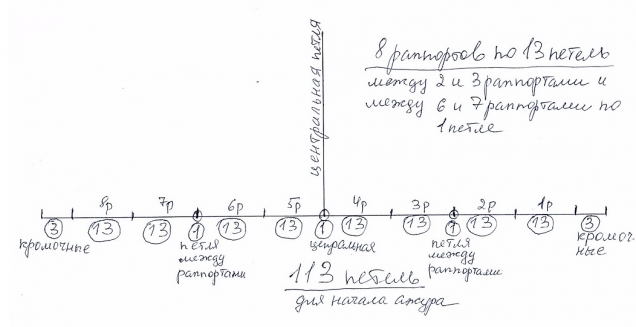 центральная петля
8 раппортов по 13 петель
между 2 и 3 раппортами и
между 6 и 7 раппортами по
1 петле
8р 7р 6р 5р 4р 3р 2р 1р
3 13 13 1 13 13 1 13 13 1 13 13 3
кромочные
петля
между
раппортами
центральная
петля
между
раппортами
кромоч-
ные
113 петель
для начала ажура